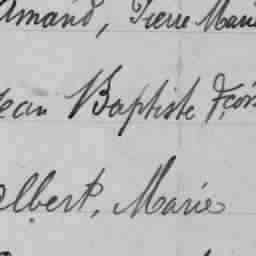 Amand, Pierre Marie
Jean Baptiste Fçois
Albert, Marie